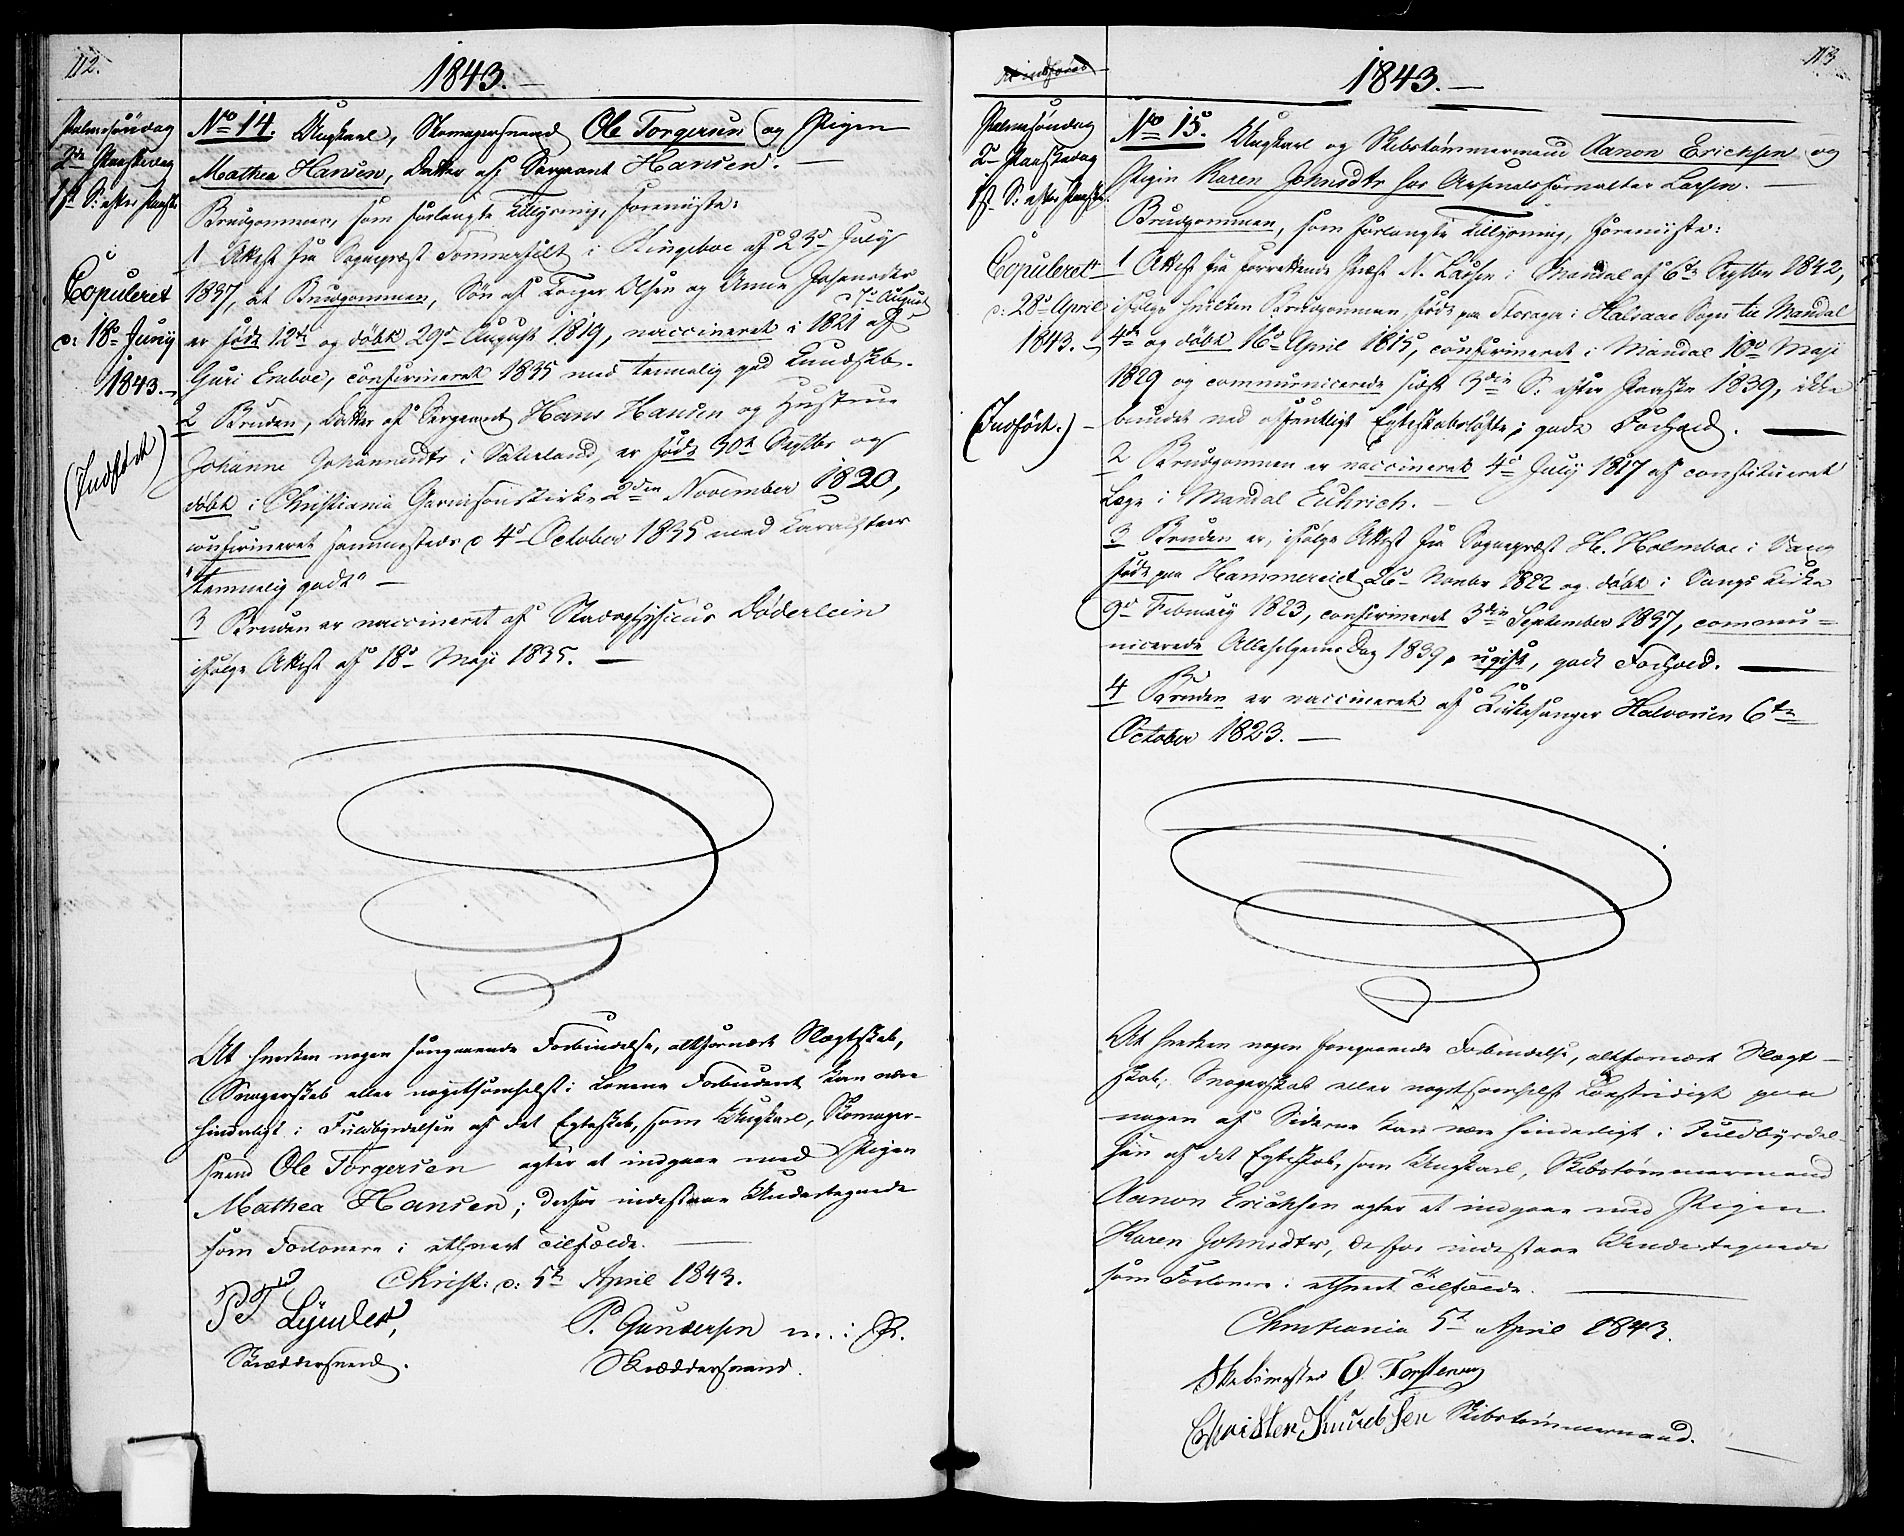 112.
1843.
Palmesöndag
2den Paaskedag
1ste S: efter Paaske
Copuleret
d: 18de Juny
1843.
(Indført)
No 14. Ungkarl, Skomagersvend Ole Torgersen og Pigen
Mathea Hansen, Datter af Sergeant Hansen.
Brudgommen, som forlangte Tillysning, foreviiste:
1 Attest fra Sognepræst Sommerfelt i Ringeboe af 23de July
1837, at Brudgommen, Søn af Torger Olsen og Anne
er født 12te og døbt 29de August 1819, vaccineret i 1821 af
d 7de August
Guri Enboe, confirmeret 1835 med temmelig god Kundskab.
2 Bruden, Datter af Sergeant Hans Hansen og Hustrue
Johanne Johannesdtr i Saterland, er født 30te Septbr og
døbt i Christiania Garnisonskirke 2den November 1820,
confirmeret sammesteds d 4de October 1835 med Karacteer
"temmelig godt"
3 Bruden er vaccineret af Stadsphysicus Døderlein
ifølge Attest af 18de Maji 1835.
At hverken nogen foregaaende Forbindelse, altfornært Slægtskab,
Svogerskab eller nogetsomhelst i Lovene Forbudent kan være
hinderligt i Fuldbyrdelsen af det Egteskab, som Ungkarl, Skomager-
svend Ole Torgersen agter at indgaae med Pigen
Mathea Hansen; derfor indestaae Undertegnede
som Forlovere i ethvert Tilfælde.
Christ: d: 5te April 1843.
P. Gundersen m: P.
Skræddersvend.
Skræddersvend.
113
1843.
Palmesöndag
2den Paaskedag
1ste S: efter Paaske
Copuleret
d: 28de April
1843.
(Indført.)
No 15. Ungkarl og Skibstømmermand Aanon Erichsen og
Pigen Karen Johnsdtr hos Arsenalsforvalter Larsen.
Brudgommen, som forlangte Tillysning, foreviiste:
1 Attest fra forrettende Præst N. Larsen i Mandal af 6te Septbr 1842,
ifølge hvilken Brudgommen født paa Storager i Halsaae Sogn til Mandal
4de og døbt 16de April 1815, confirmeret i Mandal 10de Maji
1829 og communicerede sidst 3die S: efter Paaske 1839, ikke
bundet ved offentligt Egteskabsløfte; godt Forhold.
2 Brudgommen er vaccineret 4de July 1817 af constitueret
Læge i Mandal Euhrich.
3 Bruden er, ifølge Attest fra Sognepræst H. Holmboe i Vang
født paa Hammereid 26de Novbr 1822 og døbt i Vangs Kirke
9de February 1823, confirmeret 3die September 1837, commu=
nicerede Allehelgens Dag 1839, ugift, godt Forhold.
4 Bruden er vaccineret af Kirkesanger Halvorsen 6te
October 1823.
At hverken nogen foregaaende Forbindelse, altfornært Slægt-
skab, Svogerskab eller nogetsomhelst Lovstridigt paa
nogen af Siderne kan være hinderligt i Fuldbyrdel-
sen af det Egteskab, som Ungkarl, Skibstømmermand
Aanon Erichsen agter at indgaae med Pigen
Karen Johnsdtr, derfor indestaae Undertegnede
som Forlovere i ethvert Tilfælde.
Christiania 5te April 1843.
Skibsmester O Torstensen
Christen Knudsen Skibstømmermand.